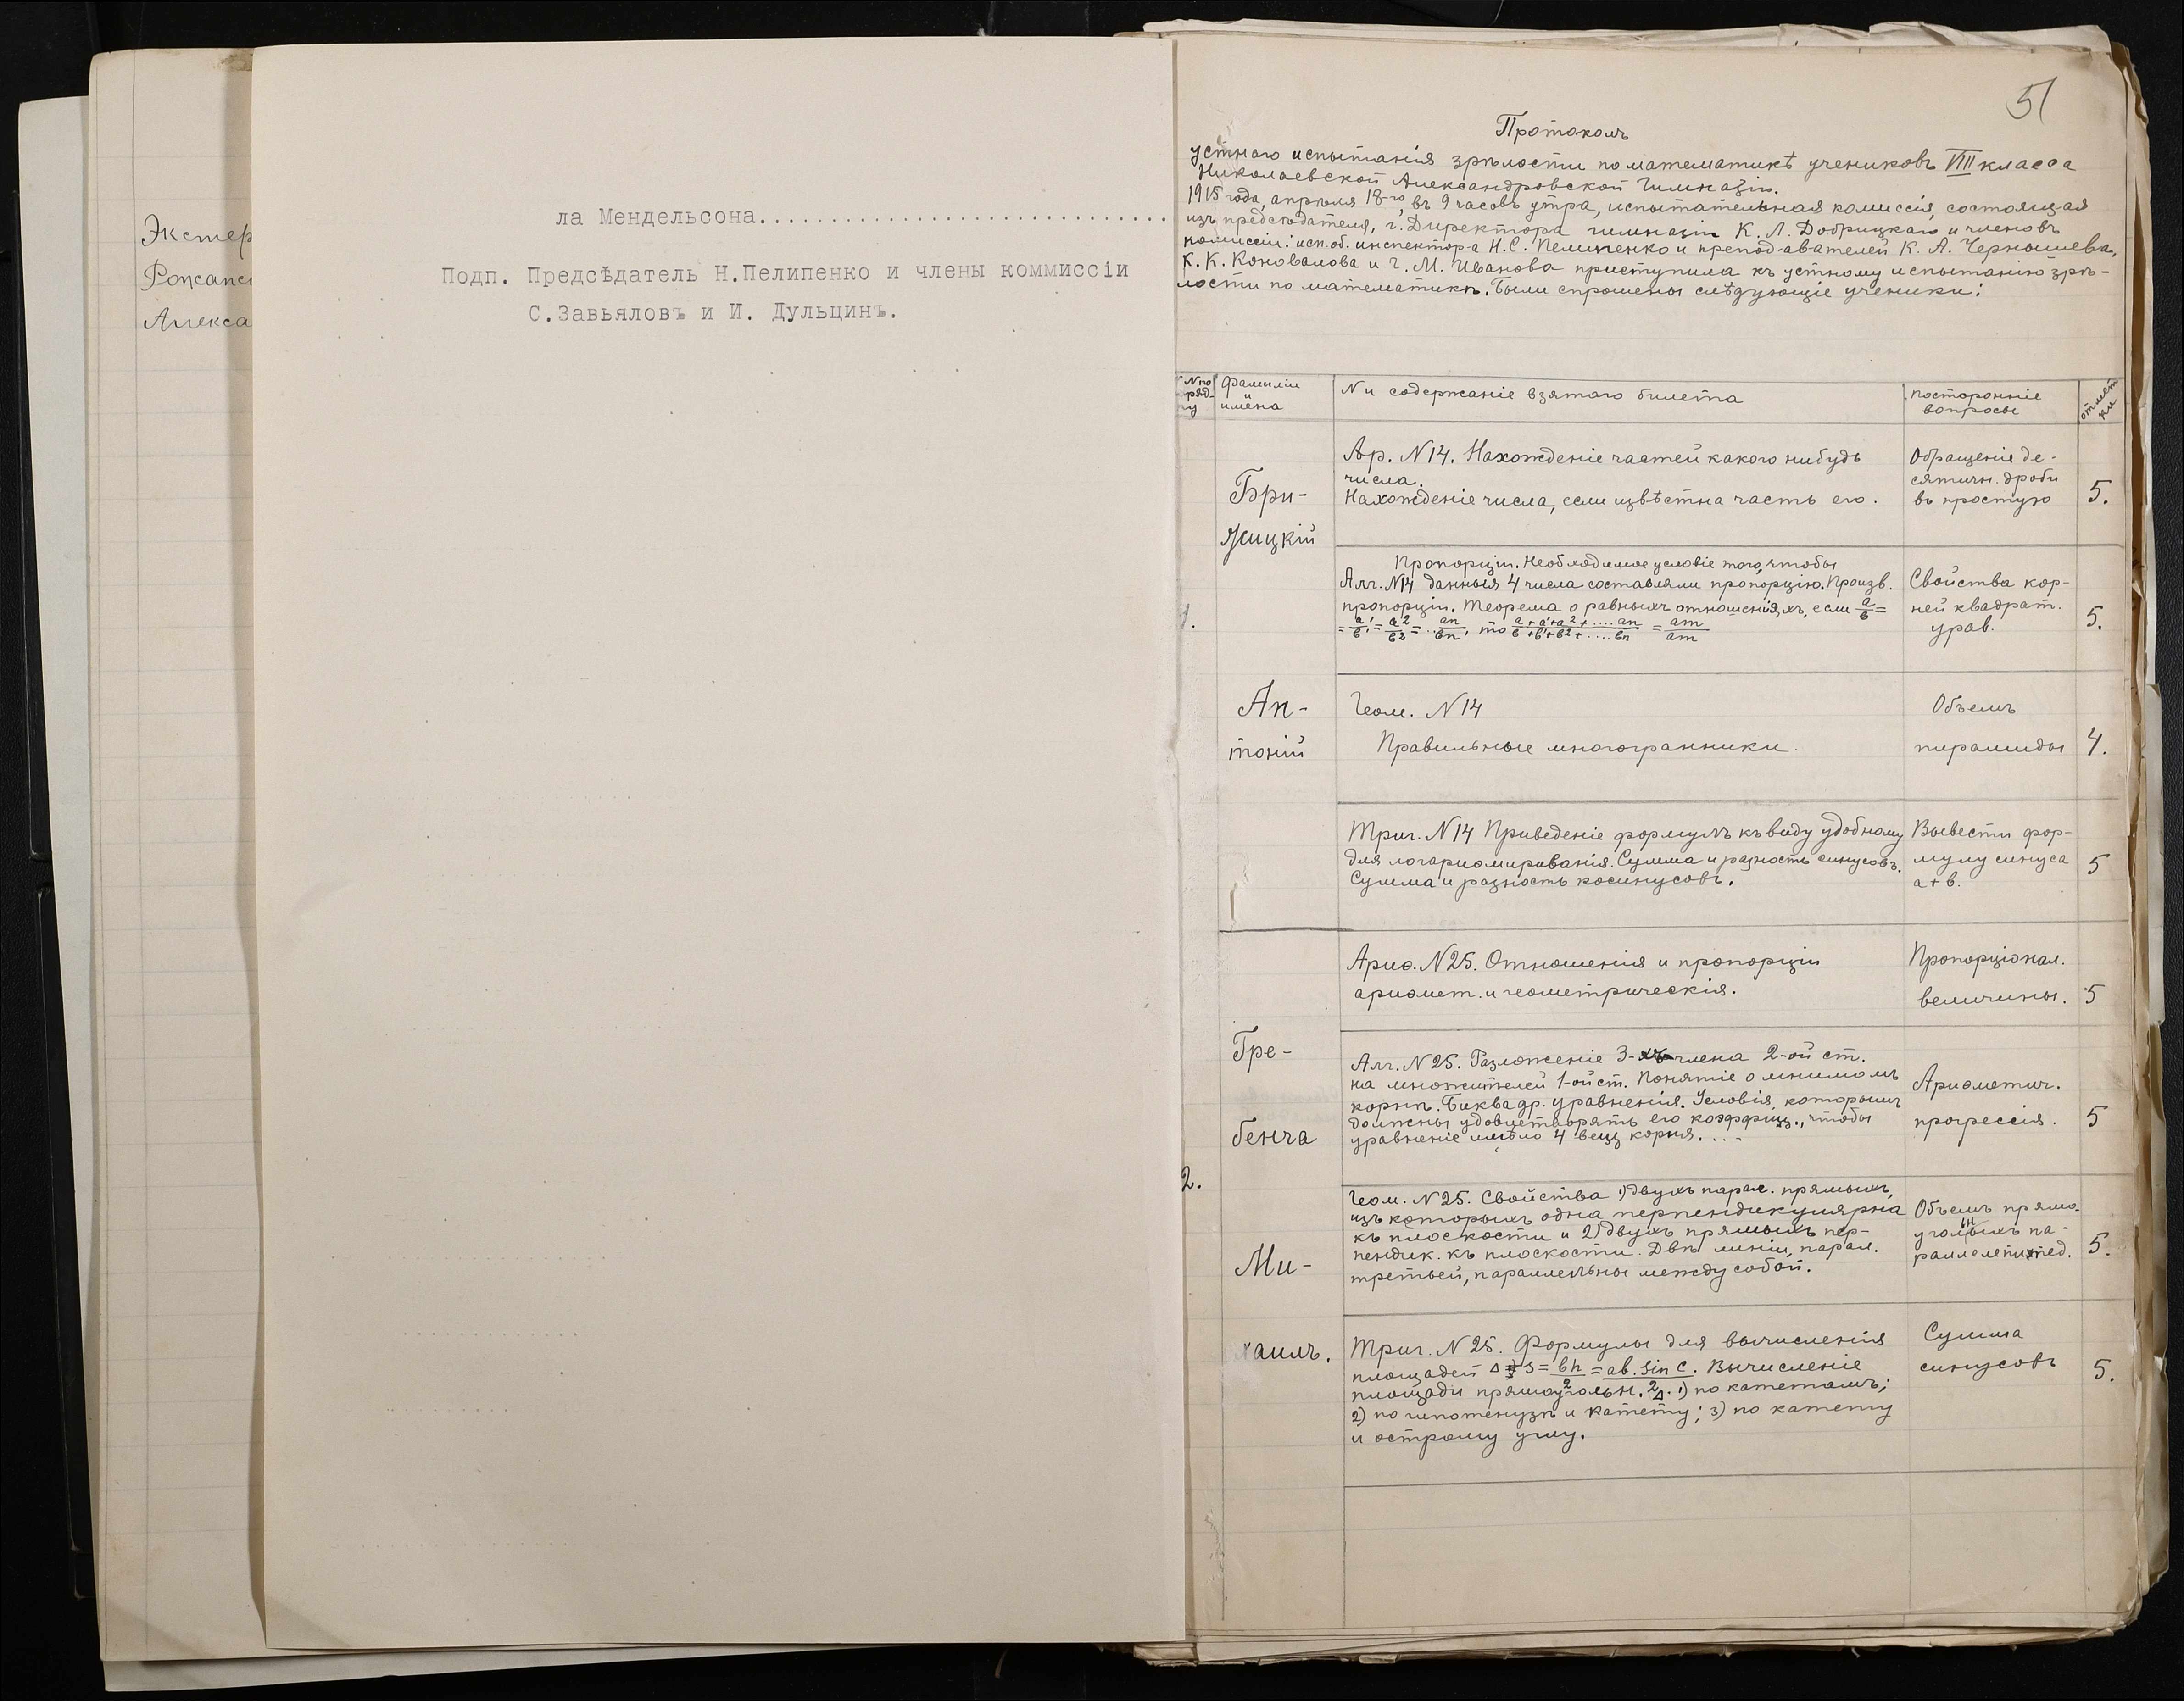 Экстер
Рожанс
Алекса
ла Мендельсона..............................
Подп. Предсѣдатель Н.Пелипенко и члены коммиссіи
С.Завьяловъ и И. Дульцинъ.
51
Протоколъ
устнаго испытанія зрѣлости по математикѣ учениковъ VIII класса
Николаевской Александровской Гимназіи.
1915 года, апрѣля 18-го, въ 9 часовъ утра, испытательная комиссія, состоящая
изъ предсѣдателя, г. Директора гимназіи К. Л. Добрицкаго и членовъ
комиссіи: исп. об. инспектора Н. С. Пелипенко и преподавателей К. А. Чернышева,
К. К. Коновалова и Г. М. Иванова приступила къ устному испытанію зрѣ-
лости по математикѣ. Были спрошены слѣдующіе ученики:
N по
ряд-
ку
Фамиліи
и
имена
N и содержаніе взятаго билета
посторонніе
вопросы
отмѣт
ки
1.
Бри-
жицкій
Ан-
тоній
Ар. N 14. Нахожденіе частей какого нибудь
числа.
Нахожденіе числа, если извѣстна часть его.
Обращеніе де-
сятичн. дроби
въ простую
5.
Пропорціи. Необходимое условіе того, чтобы
Алг. N14 данныя 4 числа составляли пропорцію. Произв.
пропорціи. Теорема о равныхъ отношеніяхъ, если a/b =
= a'/b' = a2/b2 = .. an/bn, то a+a'+a2+....an / b+b'+b2+....bn = am/am
Свойства кор-
ней квадрат.
урав.
5.
Геом. N 14
Правильные многогранники.
Объемъ
пирамиды
4.
Триг. N 14 Приведеніе формулъ къ виду удобному
для логариѳмированія. Сумма и разность синусовъ.
Сумма и разность косинусовъ.
Вывести фор-
мулу синуса
a+b.
5
2.
Гре-
бенча
Ми-
хаилъ.
Ариѳ. N 25. Отношенія и пропорціи
ариѳмет. и геометрическія.
Пропорціонал.
величины.
5
Алг. N 25. Разложеніе 3-хъ члена 2-ой ст.
на множителей 1-ой ст. Понятіе о мнимомъ
корнѣ. Биквадр. уравненія. Условія, которымъ
должны удовлетворять его коэффиц., чтобы
уравненіе имѣло 4 вещ корня....
Ариѳметич.
прогрессія.
5
Геом. N 25. Свойства 1) двухъ парал. прямыхъ,
изъ которыхъ одна перпендикулярна
къ плоскости и 2) двухъ прямыхъ пер-
пендик. къ плоскости. Двѣ линіи, парал.
третьей, параллельны между собой.
Объемъ прямо-
угольныхъ па-
раллелепипед.
5.
Триг. N 25. Формулы для вычисленія
площадей Δ S = bh/2 = ab. Sin C/2. Вычисленіе
площади прямоугольн. Δ. 1) по катетамъ;
2) по гипотенузѣ и катету; 3) по катету
и острому углу.
Сумма
синусовъ
5.